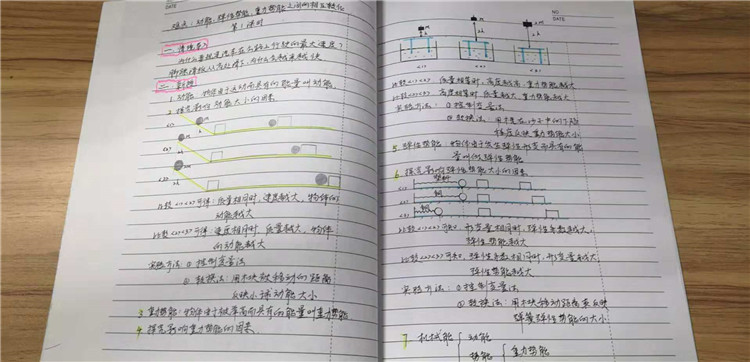 难点：动能、弹性势能、重力势能之间的相互转化
第1课时
一、情境引入
为什么要规定汽车在公路上行驶的最大速度？
二、新授
1. 动能：物体由于运动而具有的能量叫动能
2. 探究影响动能大小的因素
比较<1><2>可得：质量相同时，速度越大，物体的
动能越大
比较<2><3>可得：速度相同时，质量越大，物体
的动能越大
实验方法：① 控制变量法
② 转换法：用木块被移动的距离
反映小球动能大小
3. 重力势能：物体由于被举高而具有的能量叫重力势能
4. 探究影响重力势能的因素
NO.
DATE
比较<1><2> 质量相等时，高度越高，重力势能越大
比较<2><3> 高度相等时，质量越大，重力势能越大
实验方法：① 控制变量法
② 转换法：用木桩在沙子中的下陷
程度反映重力势能大小
5. 弹性势能：物体由于发生弹性形变而具有的能
量叫做弹性势能
6. 探究影响弹性势能大小的因素
<1>
<2> 钢
<3> 钢
比较<1><2>可知，形变量相同时，弹性系数越大，
弹性势能越大
比较<2><3>可知，弹性系数相同时，形变量越大
弹性势能越大
实验方法：① 控制变量法
② 转换法：用木块移动距离来反映
弹簧弹性势能的大小
7. 机械能 动能
势能 重力势能